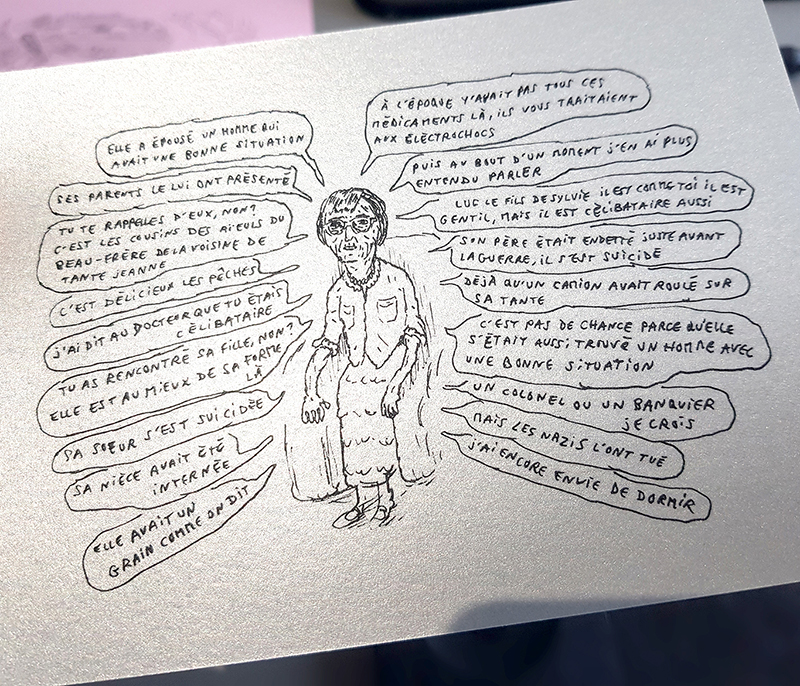 ELLE A ÉPOUSÉ UN HOMME QUI
AVAIT UNE BONNE SITUATION
SES PARENTS LE LUI ONT PRÉSENTÉ
TU TE RAPPELLES D'EUX, NON?
C'EST LES COUSINS DES AIEULS DU
BEAU-FRÈRE DE LA VOISINE DE
TANTE JEANNE
C'EST DÉLICIEUX LES PÊCHES
J'AI DIT AU DOCTEUR QUE TU ÉTAIS
CÉLIBATAIRE
TU AS RENCONTRÉ SA FILLE, NON?
ELLE EST AU MIEUX DE SA FORME
LÀ
SA SOEUR S'EST SUICIDÉE
SA NIÈCE AVAIT ÉTÉ
INTERNÉE
ELLE AVAIT UN
GRAIN COMME ON DIT
À L'ÉPOQUE Y'AVAIT PAS TOUS CES
MÉDICAMENTS LÀ, ILS VOUS TRAITAIENT
AUX ÉLECTROCHOCS
PUIS AU BOUT D'UN MOMENT J'EN AI PLUS
ENTENDU PARLER
LUC LE FILS DE SYLVIE IL EST COMME TOI IL EST
GENTIL, MAIS IL EST CÉLIBATAIRE AUSSI
SON PÈRE ÉTAIT ENDETTÉ JUSTE AVANT
LA GUERRE, IL S'EST SUICIDÉ
DÉJÀ QU'UN CAMION AVAIT ROULÉ SUR
SA TANTE
C'EST PAS DE CHANCE PARCE QU'ELLE
S'ÉTAIT AUSSI TROUVÉ UN HOMME AVEC
UNE BONNE SITUATION
UN COLONEL OU UN BANQUIER
JE CROIS
MAIS LES NAZIS L'ONT TUÉ
J'AI ENCORE ENVIE DE DORMIR